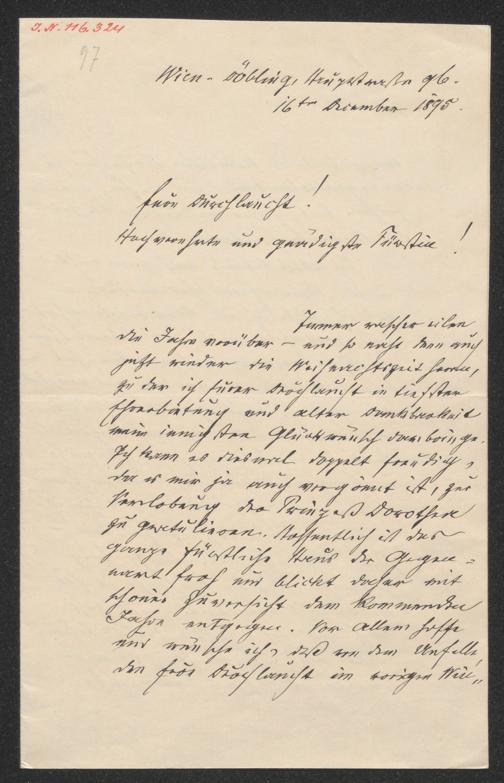 I. N. 116.324
97
Wien-Döbling, Hauptstrasse 96.
16ten December 1895.
Eure Durchlaucht!
Hochverehrte und gnädigste Fürstin!
Immer rascher eilen
die Jahre vorüber – und so naht denn auch
jetzt wieder die Weihnachtszeit heran,
zu der ich Eurer Durchlaucht in tiefster
Ehrerbietung und alter Dankbarkeit
meine innigsten Glückwünsche darbringe.
Ich kann es diesmal doppelt freudig,
da es mir ja auch vergönnt ist, zur
Verlobung der Prinzeß Dorothea
zu gratulieren. Hoffentlich ist das
ganze fürstliche Haus der Gegen-
wart froh und blickt daher mit
schöner Zuversicht dem kommenden
Jahre entgegen. Vor Allem hoffe
und wünsche ich, daß von dem Unfalle,
den Eure Durchlaucht im vorigen